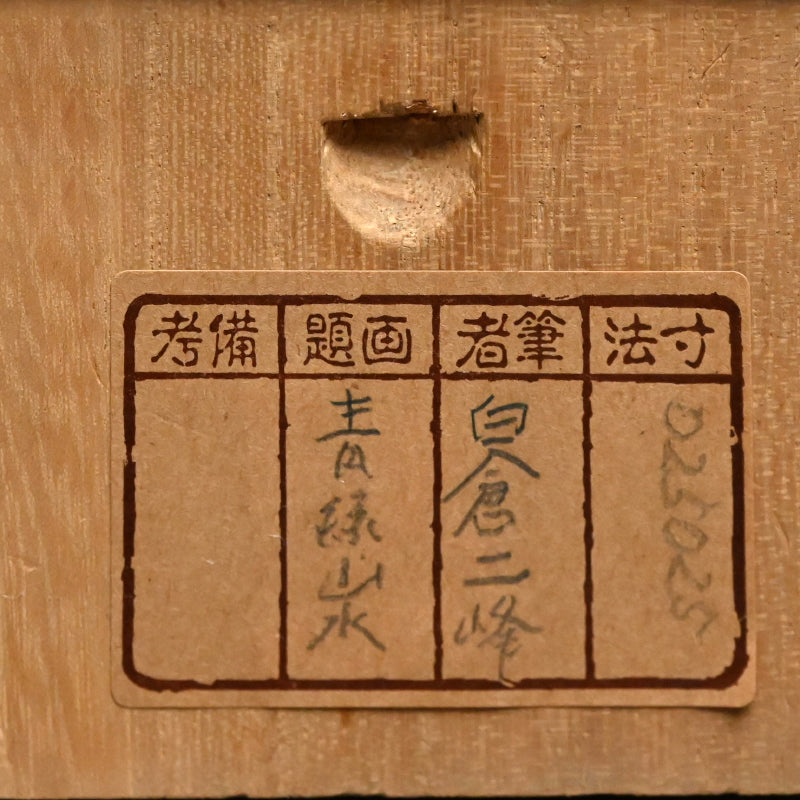 寸法
025025
筆者
白倉二峰
画題
青緑山水
備考